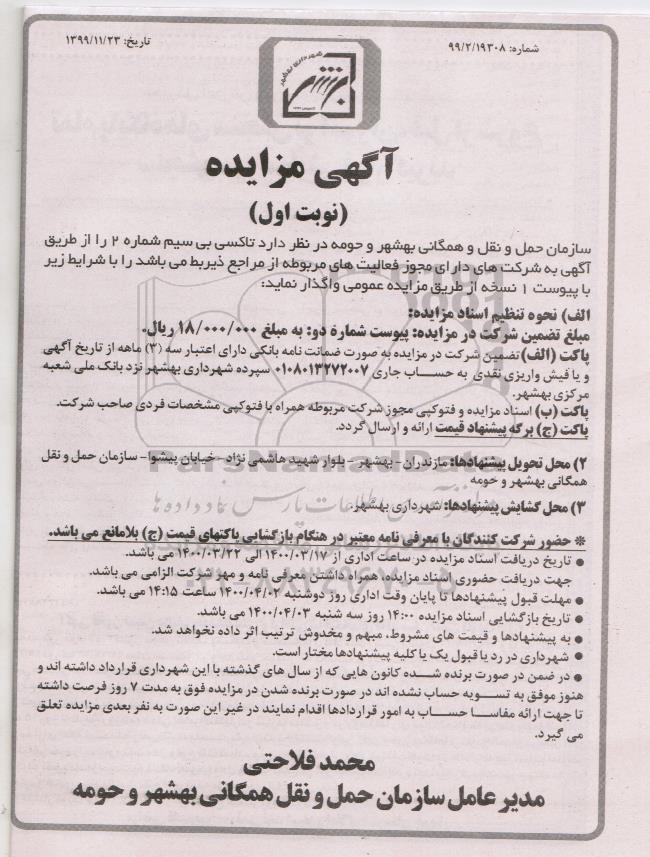 شماره: ۹۹/۲/۱۹۳۰۸
تاریخ: ۱۳۹۹/۱۱/۲۳
شهرداری بهشهر
آگهی مزایده
(نوبت اول)
سازمان حمل و نقل و همگانی بهشهر و حومه در نظر دارد تاکسی بی سیم شماره ۲ را از طریق
آگهی به شرکت های دارای مجوز فعالیت های مربوطه از مراجع ذیربط می باشد را با شرایط زیر
با پیوست ۱ نسخه از طریق مزایده عمومی واگذار نماید:
الف) نحوه تنظیم اسناد مزایده:
مبلغ تضمین شرکت در مزایده: پیوست شماره دو: به مبلغ ۱۸/۰۰۰/۰۰۰ ریال.
پاکت (الف) تضمین شرکت در مزایده به صورت ضمانت نامه بانکی دارای اعتبار سه (۳) ماهه از تاریخ آگهی
و یا فیش واریزی نقدی به حساب جاری ۰۱۰۸۰۱۳۲۷۲۰۰۷ سپرده شهرداری بهشهر نزد بانک ملی شعبه
مرکزی بهشهر.
پاکت (ب) اسناد مزایده و فتوکپی مجوز شرکت مربوطه همراه با فتوکپی مشخصات فردی صاحب شرکت.
پاکت (ج) برگه پیشنهاد قیمت ارائه و ارسال گردد.
۲) محل تحویل پیشنهادها: مازندران - بهشهر - بلوار شهید هاشمی نژاد - خیابان پیشوا- سازمان حمل و نقل
همگانی بهشهر و حومه
۳) محل گشایش پیشنهادها: شهرداری بهشهر.
* حضور شرکت کنندگان با معرفی نامه معتبر در هنگام بازگشایی پاکتهای قیمت (ج) بلامانع می باشد.
● تاریخ دریافت اسناد مزایده در ساعت اداری از ۱۴۰۰/۰۳/۱۷ الی ۱۴۰۰/۰۳/۲۲ می باشد.
جهت دریافت حضوری اسناد مزایده، همراه داشتن معرفی نامه و مهر شرکت الزامی می باشد.
● مهلت قبول پیشنهادها تا پایان وقت اداری روز دوشنبه ۱۴۰۰/۰۴/۰۲ ساعت ۱۴:۱۵ می باشد.
● تاریخ بازگشایی اسناد مزایده ۱۴:۰۰ روز سه شنبه ۱۴۰۰/۰۴/۰۳ می باشد.
● به پیشنهادها و قیمت های مشروط، مبهم و مخدوش ترتیب اثر داده نخواهد شد.
● شهرداری در رد یا قبول یک یا کلیه پیشنهادها مختار است.
● در ضمن در صورت برنده شده کانون هایی که از سال های گذشته با این شهرداری قرارداد داشته اند و
هنوز موفق به تسویه حساب نشده اند در صورت برنده شدن در مزایده فوق به مدت ۷ روز فرصت داشته
تا جهت ارائه مفاسا حساب به امور قراردادها اقدام نمایند در غیر این صورت به نفر بعدی مزایده تعلق
می گیرد.
محمد فلاحتی
مدیر عامل سازمان حمل و نقل همگانی بهشهر و حومه
ParsNamadData